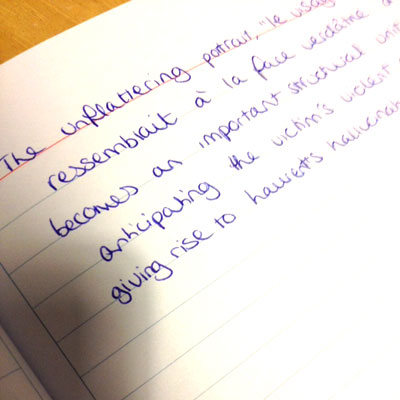 The unflattering portrait, "le visag
ressemblait à la face verdâtre
becomes an important structural unit
anticipating the victim's violent
giving rise to Laurent's hallucinat